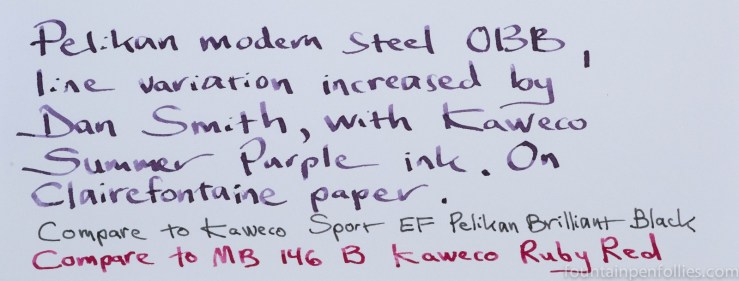 Pelikan modern Steel OBB,
line variation increased by
Dan Smith, with Kaweco
Summer Purple ink. On
Clairefontaine paper.
Compare to Kaweco Sport EF Pelikan Brilliant Black
Compare to MB 146 B Kaweco Ruby Red
fountainpenfollies.com